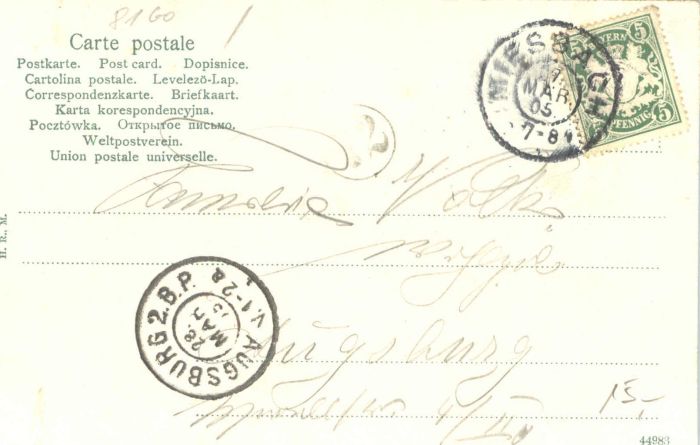 8160
Carte postale
Postkarte. Post card. Dopisnice.
Cartolina postale. Levelező-Lap.
Correspondenzkarte. Briefkaart.
Karta korespondencyjna.
Pocztówka. Открытое письмо.
Weltpostverein.
Union postale universelle.
MIESBACH
MÄR.
05.
7-8
BAYERN
5
5
PFENNIG
Familie Volk
H. R., M.
AUGSBURG 2. B.P.
V. 1-2
28.
MAR
Augsburg
15,-
44983